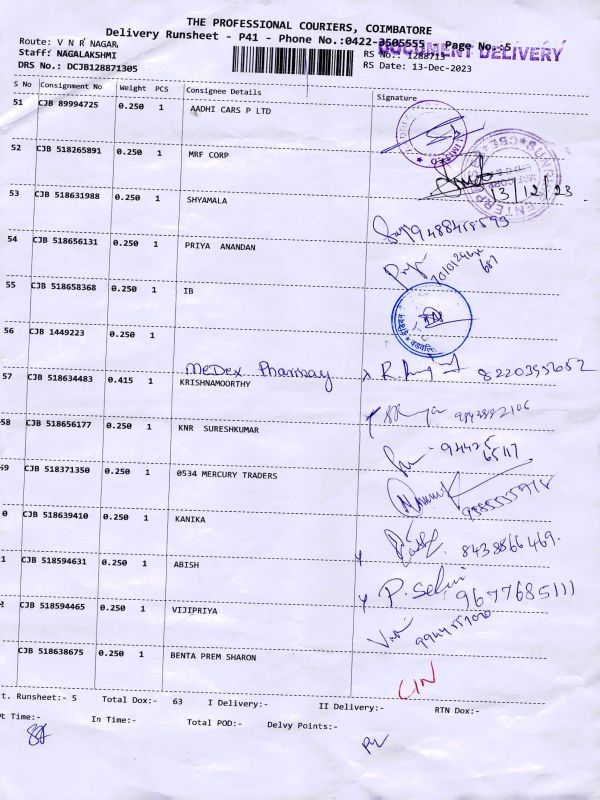 THE PROFESSIONAL COURIERS, COIMBATORE
Delivery Runsheet - P41 - Phone No.:0422-3505555 Page No.:5
DOCUMENT DELIVERY
Route: V N R NAGAR
Staff: NAGALAKSHMI
RS No.: 1288713
DRS No.: DCJB128871305
RS Date: 13-Dec-2023
S No Consignment No Weight PCS Consignee Details Signature
51 CJB 89994725 0.250 1 AADHI CARS P LTD
52 CJB 518265891 0.250 1 MRF CORP
13/12/23
53 CJB 518631988 0.250 1 SHYAMALA
54 CJB 518656131 0.250 1 PRIYA ANANDAN
55 CJB 518658368 0.250 1 IB
56 CJB 1449223 0.250 1
Medex Pharmay
57 CJB 518634483 0.415 1 KRISHNAMOORTHY
58 CJB 518656177 0.250 1 KNR SURESHKUMAR
94425
65117
69 CJB 518371350 0.250 1 0534 MERCURY TRADERS
0 CJB 518639410 0.250 1 KANIKA
8438866469.
1 CJB 518594631 0.250 1 ABISH
P. Selvi 9677685111
2 CJB 518594465 0.250 1 VIJIPRIYA
CJB 518638675 0.250 1 BENTA PREM SHARON
CIN
t. Runsheet:- 5 Total Dox:- 63 I Delivery:- II Delivery:- RTN Dox:-
pt Time:- In Time:- Total POD:- Delvy Points:-